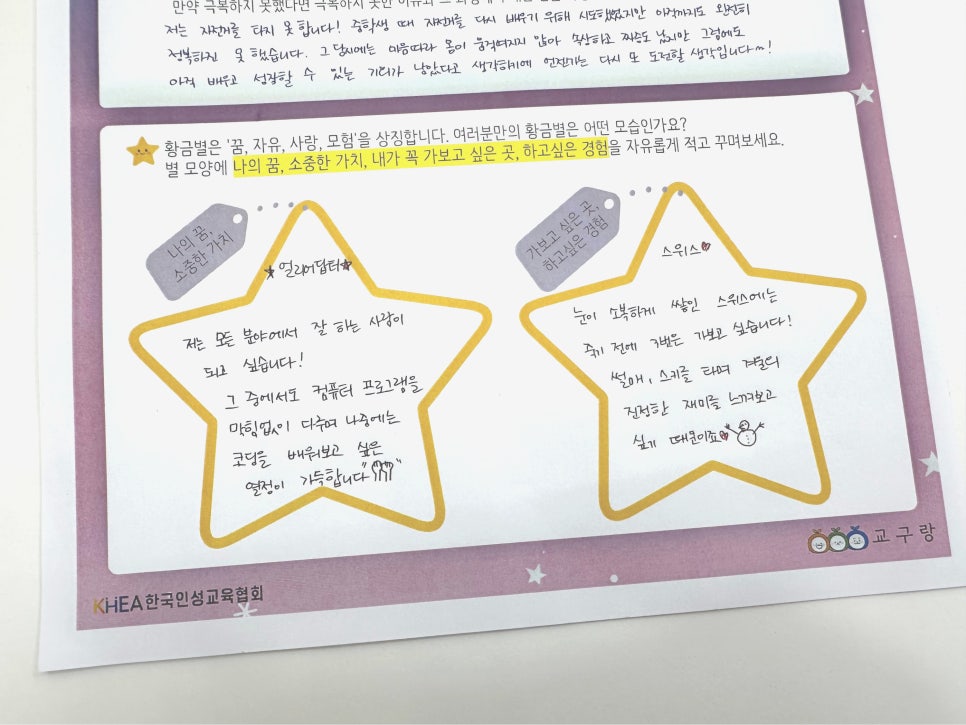 만약 극복하지 못했다면 극복하지 못한 이유와 그
저는 자전거를 타지 못 합니다! 중학생 때 자전거를 다시 배우기 위해 시도했었지만 아직까지도 완전히
정복하진 못 했습니다. 그 당시에는 마음따라 몸이 움직여지지 않아 속상하고 짜증도 났지만 그럼에도
아직 배우고 성장할 수 있는 기회가 남았다고 생각하기에 언젠가는 다시 또 도전할 생각입니다~!
황금별은 '꿈, 자유, 사랑, 모험'을 상징합니다. 여러분만의 황금별은 어떤 모습인가요?
별 모양에 나의 꿈, 소중한 가치, 내가 꼭 가보고 싶은 곳, 하고싶은 경험을 자유롭게 적고 꾸며보세요.
나의 꿈,
소중한 가치
★얼리어답터★
저는 모든 분야에서 잘 하는 사람이
되고 싶습니다!
그 중에서도 컴퓨터 프로그램을
막힘없이 다루며 나중에는
코딩을 배워보고 싶은
열정이 가득합니다
가보고 싶은 곳,
하고싶은 경험
스위스♥
눈이 소복하게 쌓인 스위스에는
죽기 전에 1번은 가보고 싶습니다!
썰매, 스키를 타며 겨울의
진정한 재미를 느껴보고
싶기 때문이죠♥
KHEA한국인성교육협회
교구랑